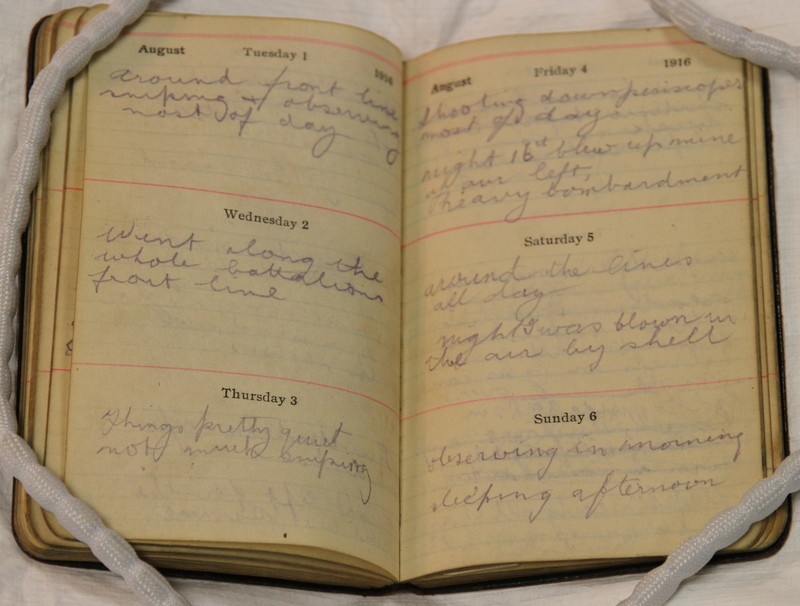 August Tuesday 1 1916
around front line
sniping + observing
most of day
Wednesday 2
Went along the
whole battalions
front line
Thursday 3
Things pretty quiet
not much sniping
August Friday 4 1916
Shooting down periscopes
most of day
night 16st blew up mine
our left,
heavy bombardment
Saturday 5
around the lines
all day
night I was blown in
the air by shell
Sunday 6
observing in morning
sleeping afternoon